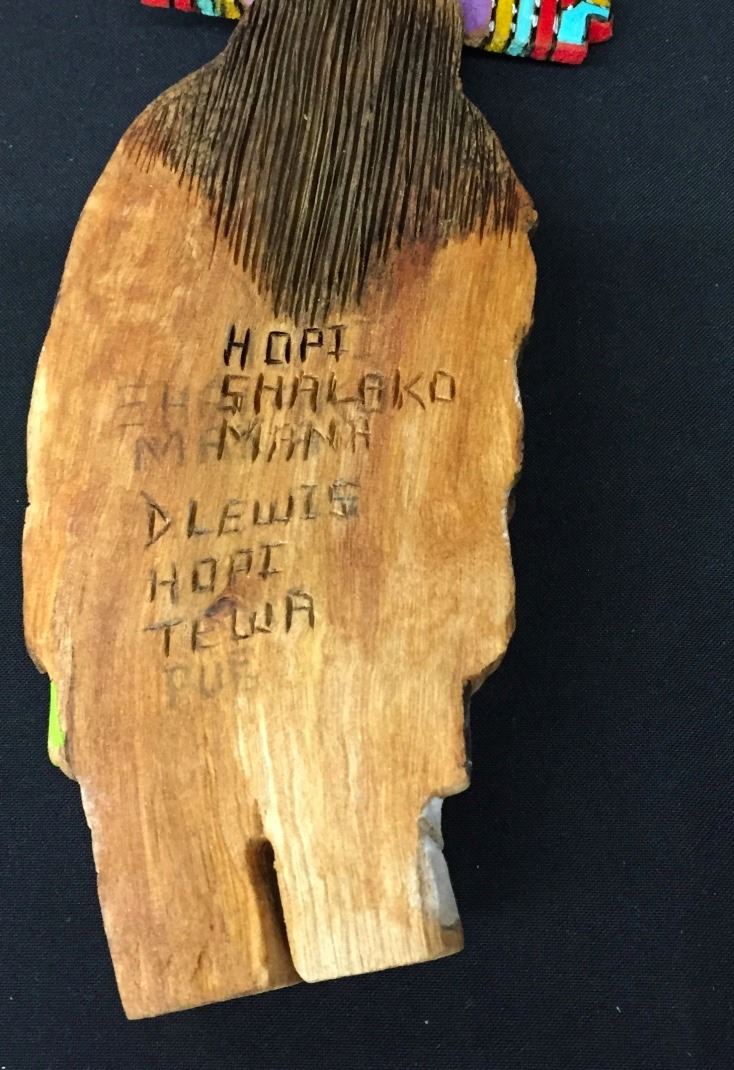 HOPI
SHALAKO
MANA
D LEWIS
HOPI
TEWA
PUE